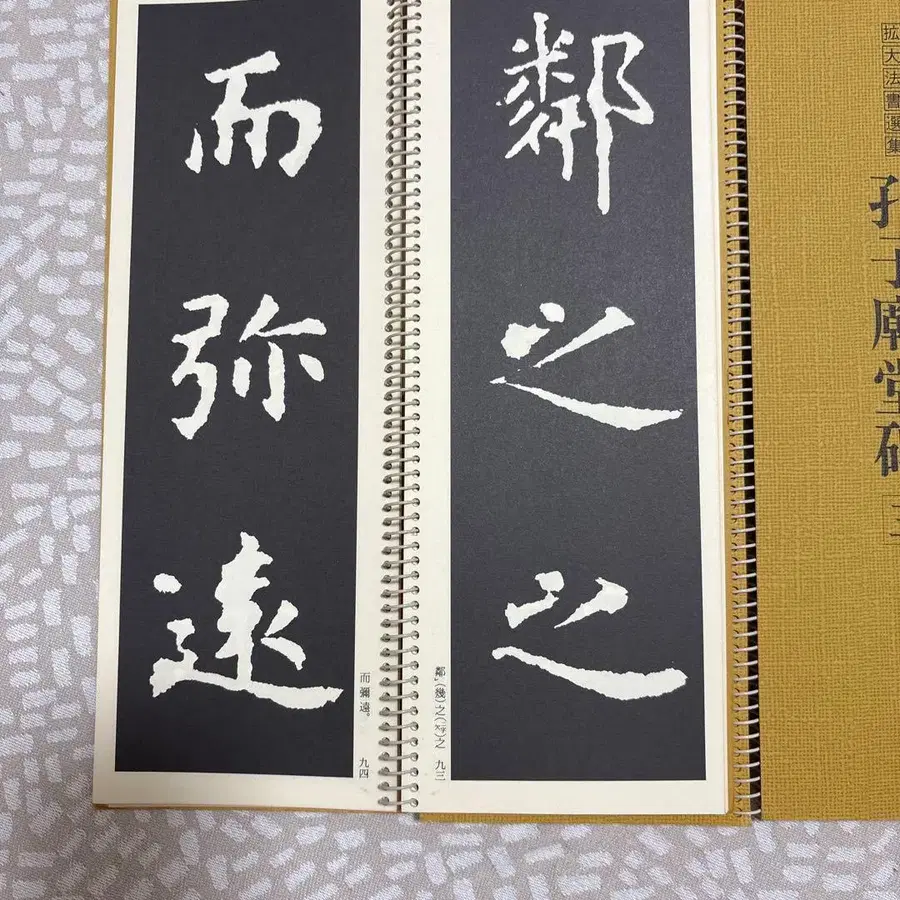 拡大法書選集
孔子廟堂碑
鄰之之
鄰、(幾)之(又字)之 九三
而弥遠
而彌遠。 九四